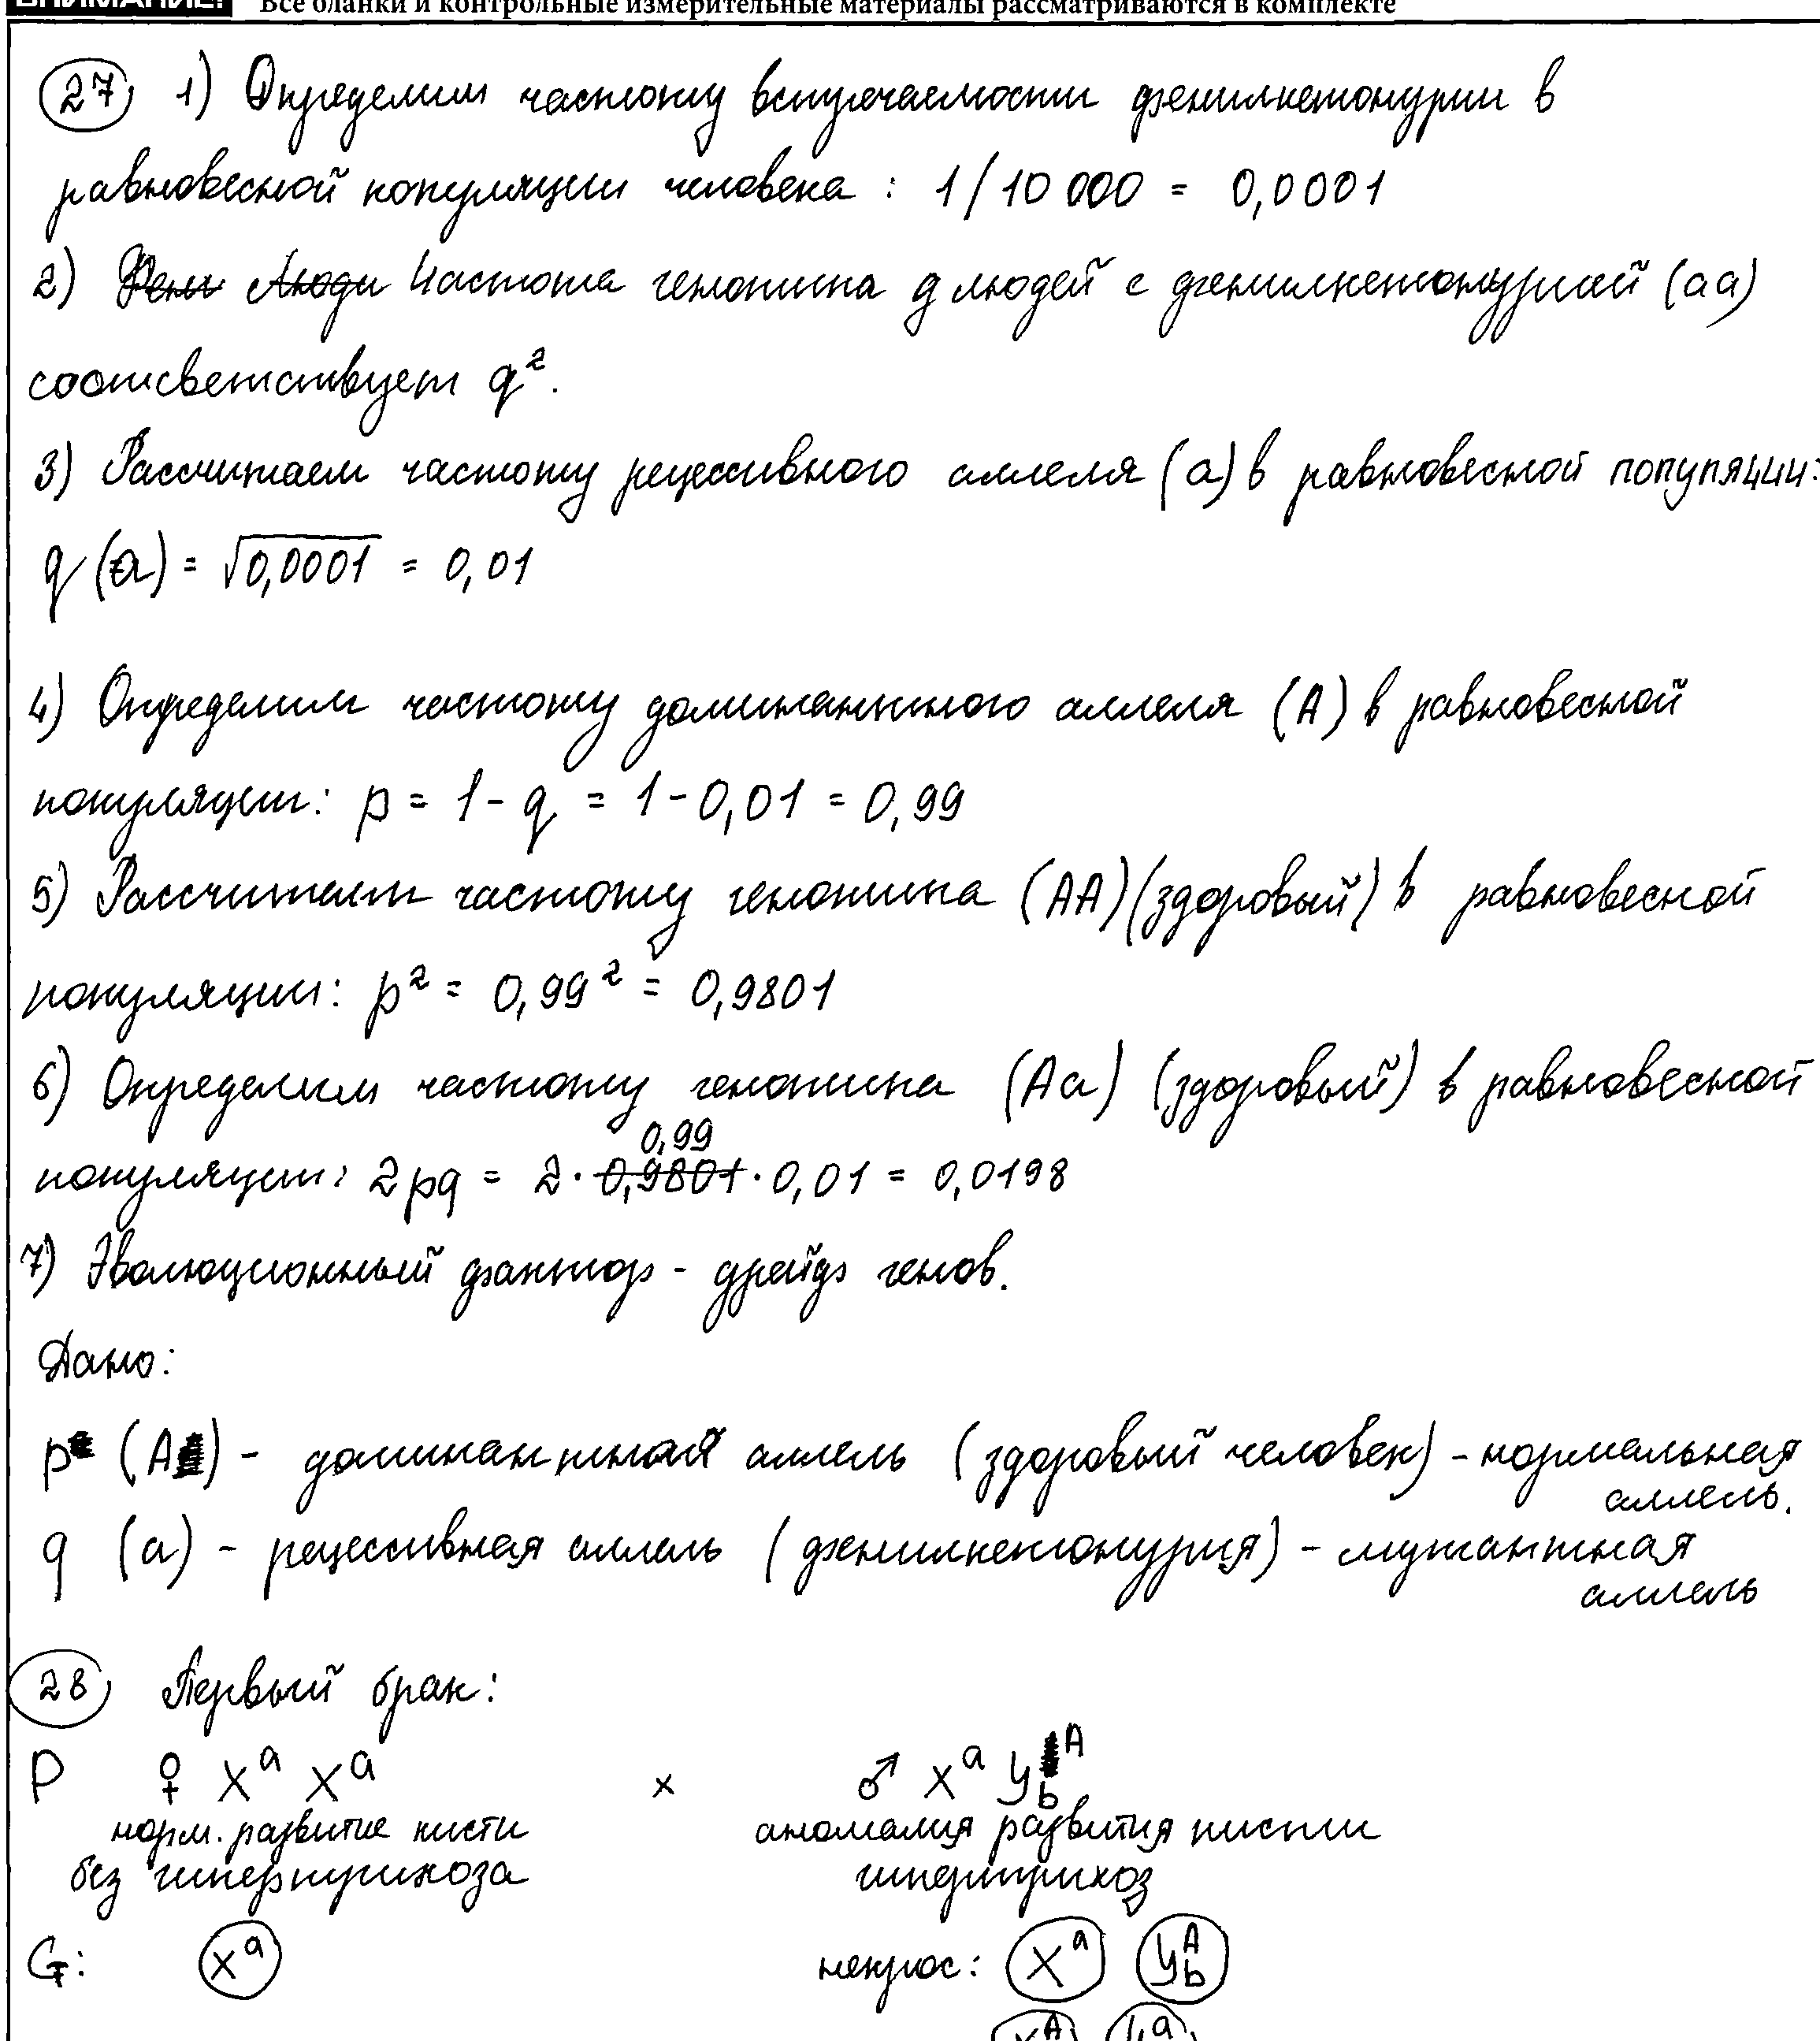 ВНИМАНИЕ! Все бланки и контрольные измерительные материалы рассматриваются в комплекте
27) 1) Определим частоту встречаемости фенилкетонурии в
равновесной популяции человека : 1/10 000 = 0,0001
2) Фени Люди Частота генотипа д людей с фенилкетонурией (aa)
соотсветствует q².
3) Рассчитаем частоту рецессивного аллеля (a) в равновесной популяции:
q (a) = √0,0001 = 0,01
4) Определим частоту доминантного аллеля (A) в равновесной
популяции: p = 1 - q = 1 - 0,01 = 0,99
5) Рассчитаем частоту генотипа (AA) (здоровый) в равновесной
популяции: p² = 0,99² = 0,9801
6) Определим частоту генотипа (Aa) (здоровый) в равновесной
0,99
популяции: 2pq = 2 · 0,9801 · 0,01 = 0,0198
7) Эволюционный фактор - дрейф генов.
Дано:
p (A) - доминантный аллель (здоровый человек) - нормальная
аллель.
q (a) - рецессивная аллель (фенилкетонурия) - мутантная
аллель
28) Первый брак:
P ♀ Xᵃ Xᵃ x ♂ Xᵃ Y_bᴬ
норм. развитие кисти аномалия развития кисти
без гипертрихоза гипертрихоз
G: Xᵃ некрос: Xᵃ Y_bᴬ
Xᴬ Yᵃ